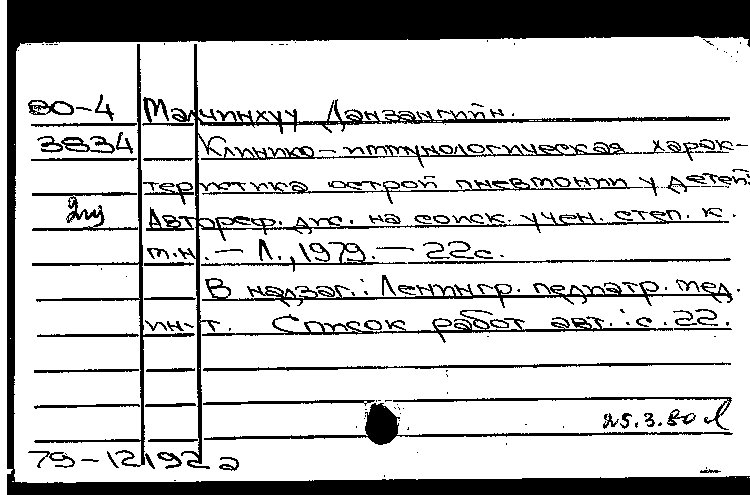 80-4 Малчинхүү Данзангийн.
3834 Клинико-иммунологическая харак-
теристика острой пневмонии у детей:
2м Автореф. дис. на соиск. учен. степ. к.
м.н. - Л., 1979. - 22с.
В надзаг.: Ленингр. педиатр. мед.
ин-т. Список работ авт.: с. 22.
25.3.80
79-12192а